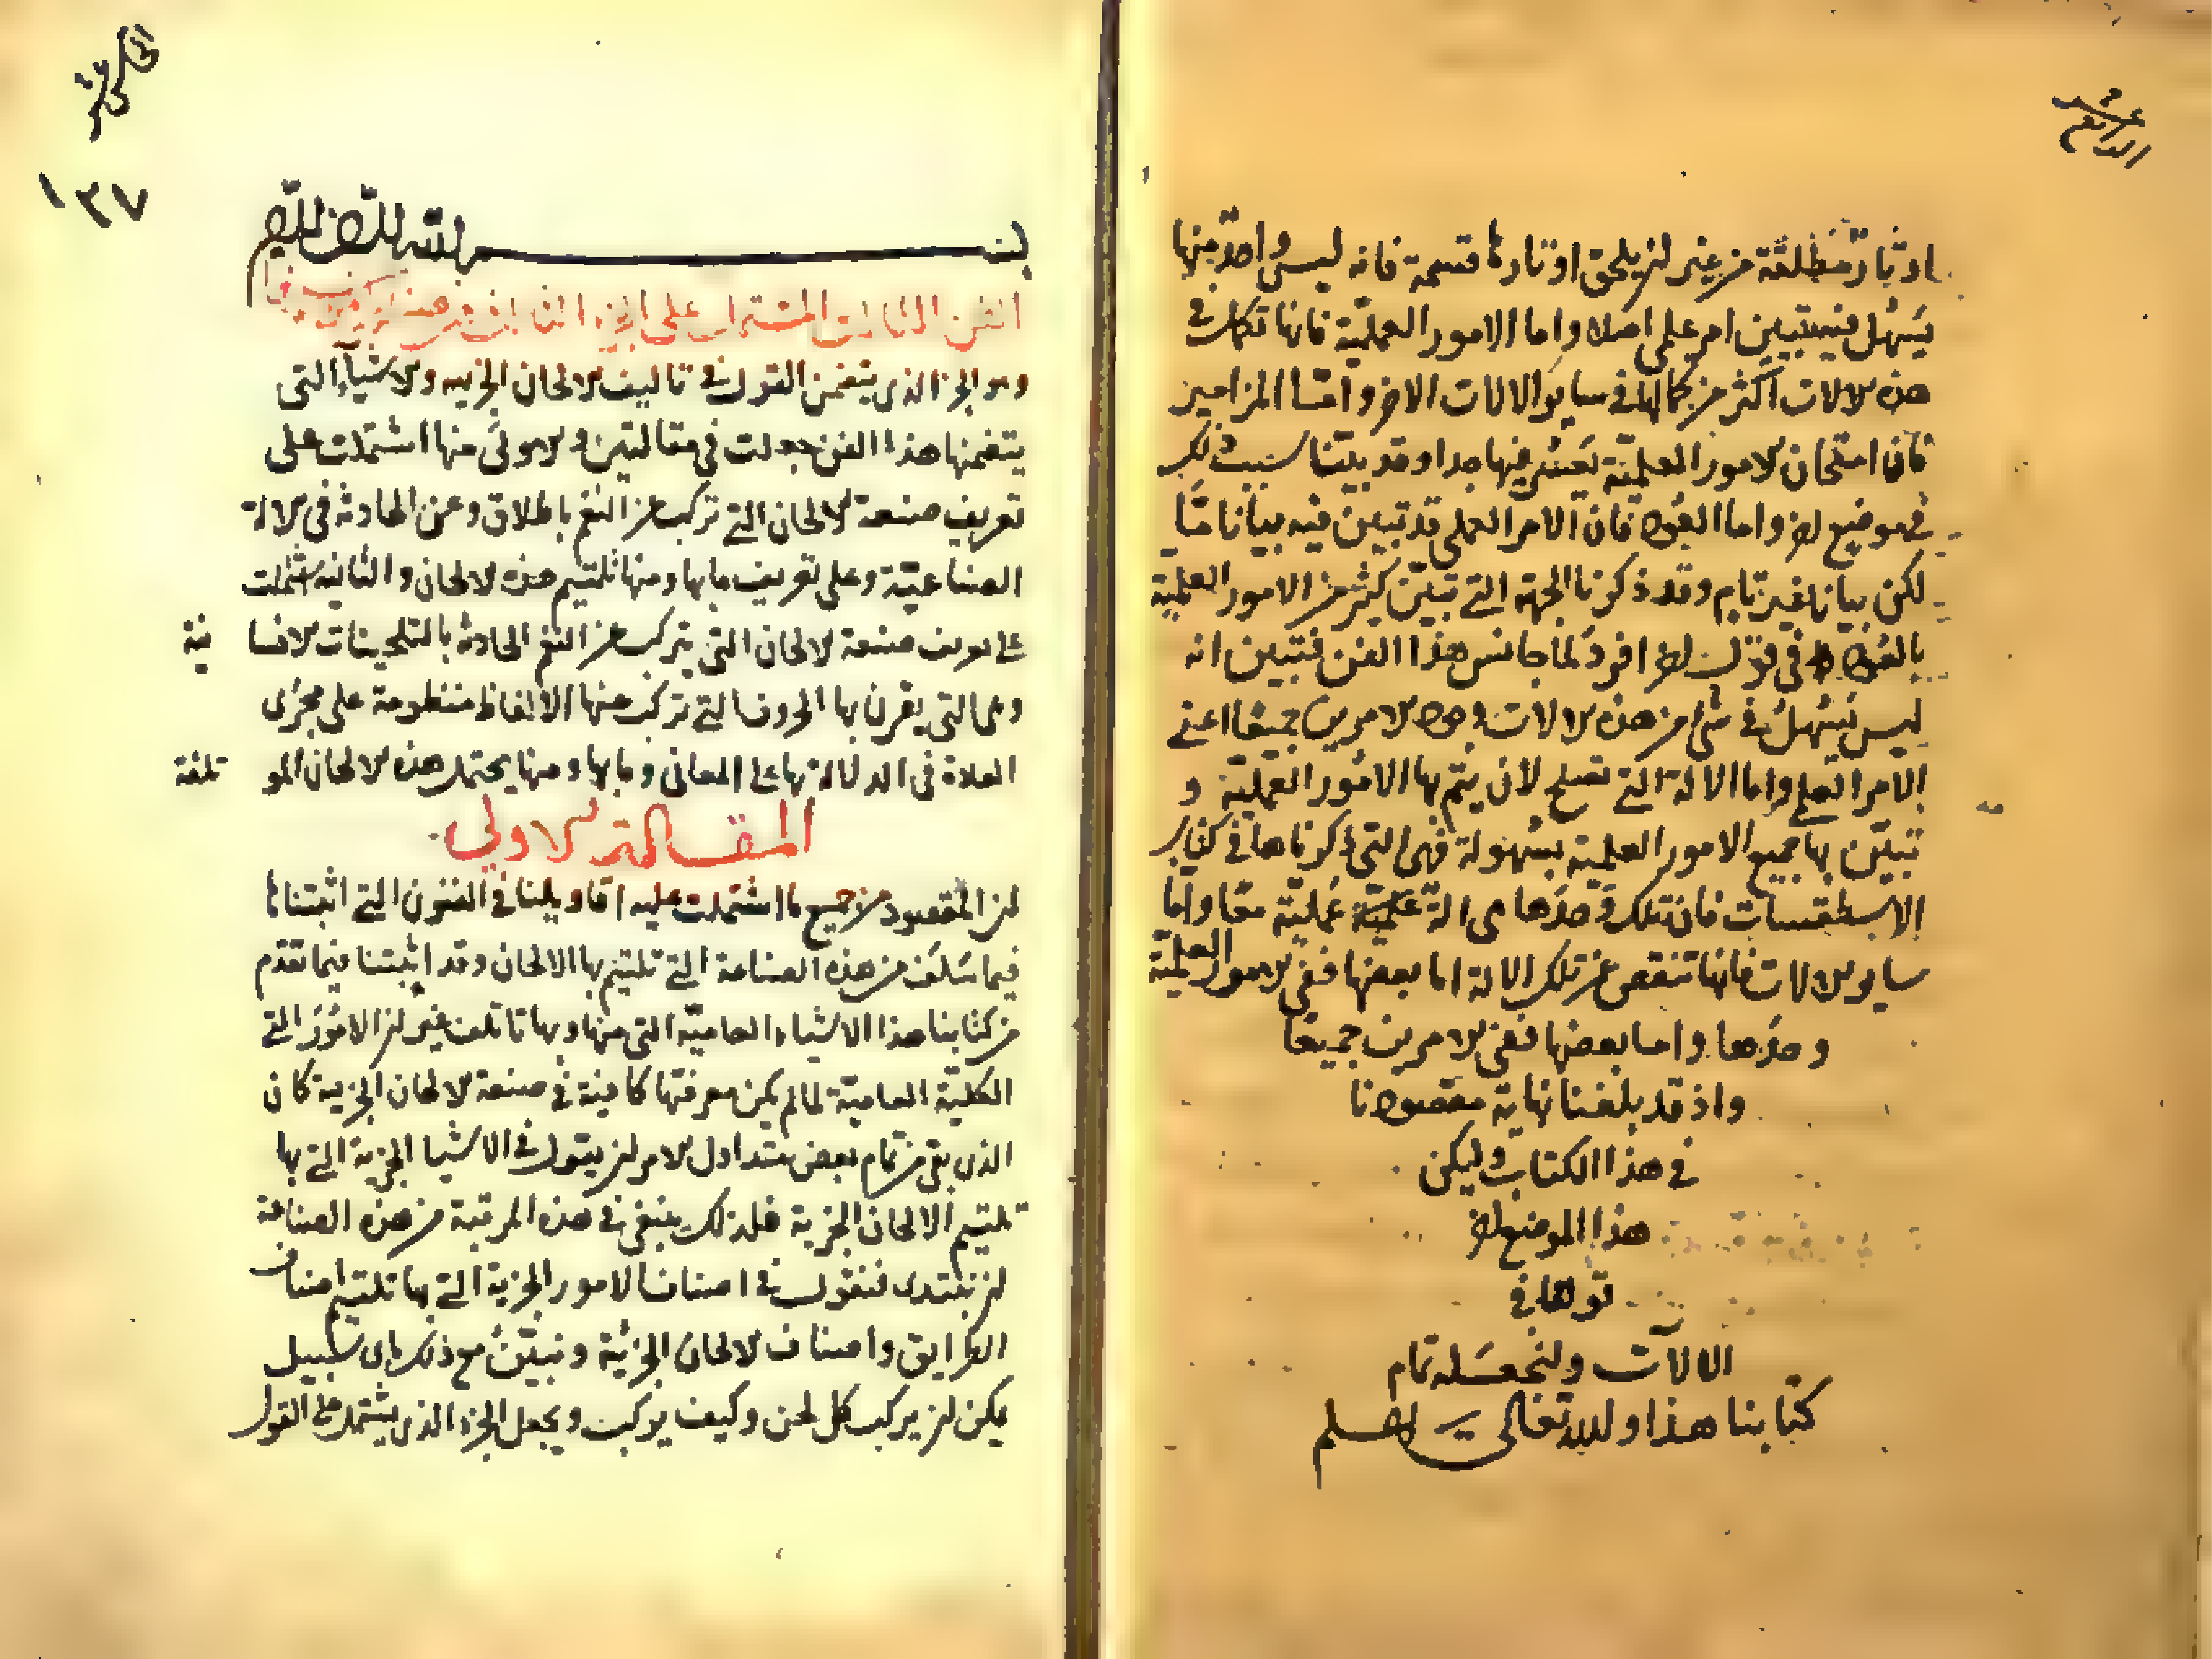 الرابع عشر
اوتار مطلقة من غير ان يلحق اوتارها قسمة فانه ليس واحد منها
يسهل فيه تبيين امر علمي اصلا واما الامور العملية فانها تكمل في
هذه الالات اكثر من كمالها في ساير الالات الاخر واما المزامير
فان امتحان الامور العلمية يعسر فيها جدا وقد بينا سبب ذلك
في موضع اخر واما العود فان الامر العملي قد تبين فيه بيانا ما
لكن بيانا غير تام وقد ذكرنا الجهة التي تبين كثير من الامور العلمية
بالعود في قول اخر افرد لما جانس هذا الفن فتبين انه
ليس يسهل في شي من هذه الالات وجود الامرين جميعا اعني
الامر العلمي واما الالة التي تصلح لان يتم بها الامور العملية و
تبين بها جميع الامور العلمية بسهولة فهي التي ذكرناها في كتاب
الاسطقسات فان تلك وحدها هي الة علمية عملية معا واما
ساير الالات فانها تنقص عن تلك الالة اما بعضها ففي الامور العلمية
وحدها واما بعضها ففي الامرين جميعا
واذ قد بلغنا نهاية مقصودنا
في هذا الكتاب وليكن
هذا الموضع اخر
قولنا في
الالات ولنجعله تمام
كتابنا هذا والله تعالى اعلم
الخامس عشر
١٣٧
بسم الله الرحمن الرحيم
الفن الثالث المشتمل على الجزء الثالث من
وهو الجزء الذي يتضمن القول في تاليف الالحان الجزيه والاشياء التي
يتضمنها هذا الفن جعلت في مقالتين والاولى منها اشتملت على
تعريف صنعة الالحان التي تركب من النغم باطلاق وعن الحادثة في الالة
الصناعية وعلى تعريف ما بها ومنها تلتيم هذه الالحان والثانيه اشتملت
على تعريف صنعة الالحان التي تركب من النغم الحادثة بالتلحينات الانسا نية
وهي التي يقرن بها الحروف التي تركب منها الالفاظ منظومة على مجرى
العادة في الدلالة بها على المعاني وما بها ومنها يحتمل هذه الالحان المو تلفة
المقالة الاولى
ان المقصود من جميع ما اشتملت عليه اقاويلنا في الفنون التي اثبتناها
فيما سلف من هذه الصناعة التي تلتيم بها الالحان وقد اثبتنا فيما تقدم
من كتابنا هذا الاشياء العامية التي منها وبها تاتلف غير ان الامور التي
الكلية العامية لما لم يكن معرفتها كافية في صنعة الالحان الجزية كان
الذي بقي من تمام بعض متداول الامر ان يقول في الاشيا الجزية التي بها
تلتيم الالحان الجزية فلذلك ينبغي في هذه المرتبة من هذه الصناعة
ان نبتدى فنقول في اصناف الامور الجزية التي بها تلتيم اصناف
الطرايق واصناف الالحان الجزئية ونبين مع ذلك باي سبيل
يمكن ان يركب كل لحن وكيف يركب ونجعل الجزء الذي يشتمل على القول